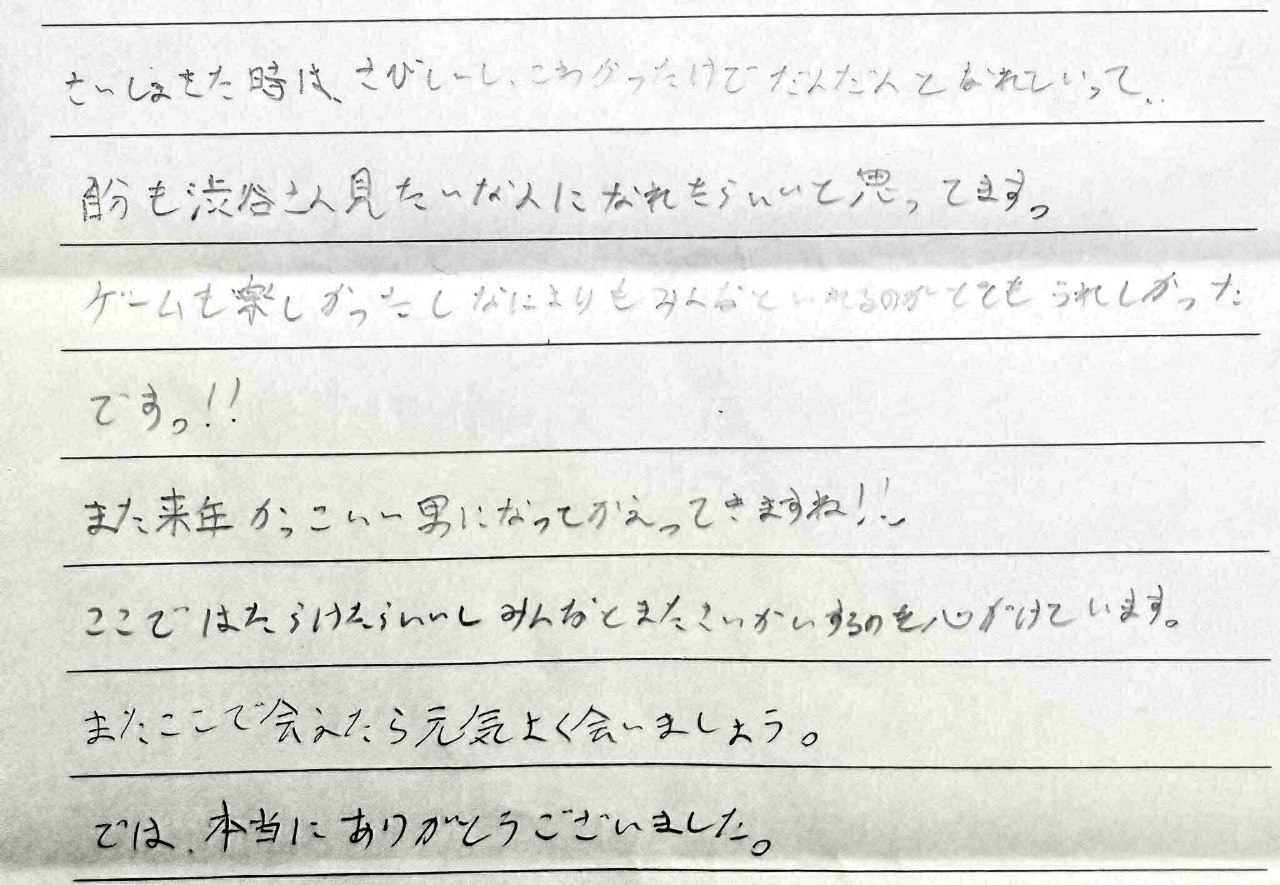 さいしょきた時は、さびしいし、こわかったけどだんだんとなれていって、
自分も渋谷さん見たいな人になれたらいいと思ってます。
ゲームも楽しかったしなによりもみんなといれるのがとてもうれしかった
ですっ!!
また来年かっこいい男になってかえってきますね!!
ここではたらけたらいいしみんなとまたさいかいするのを心がけています。
またここで会えたら元気よく会いましょう。
では、本当にありがとうございました。